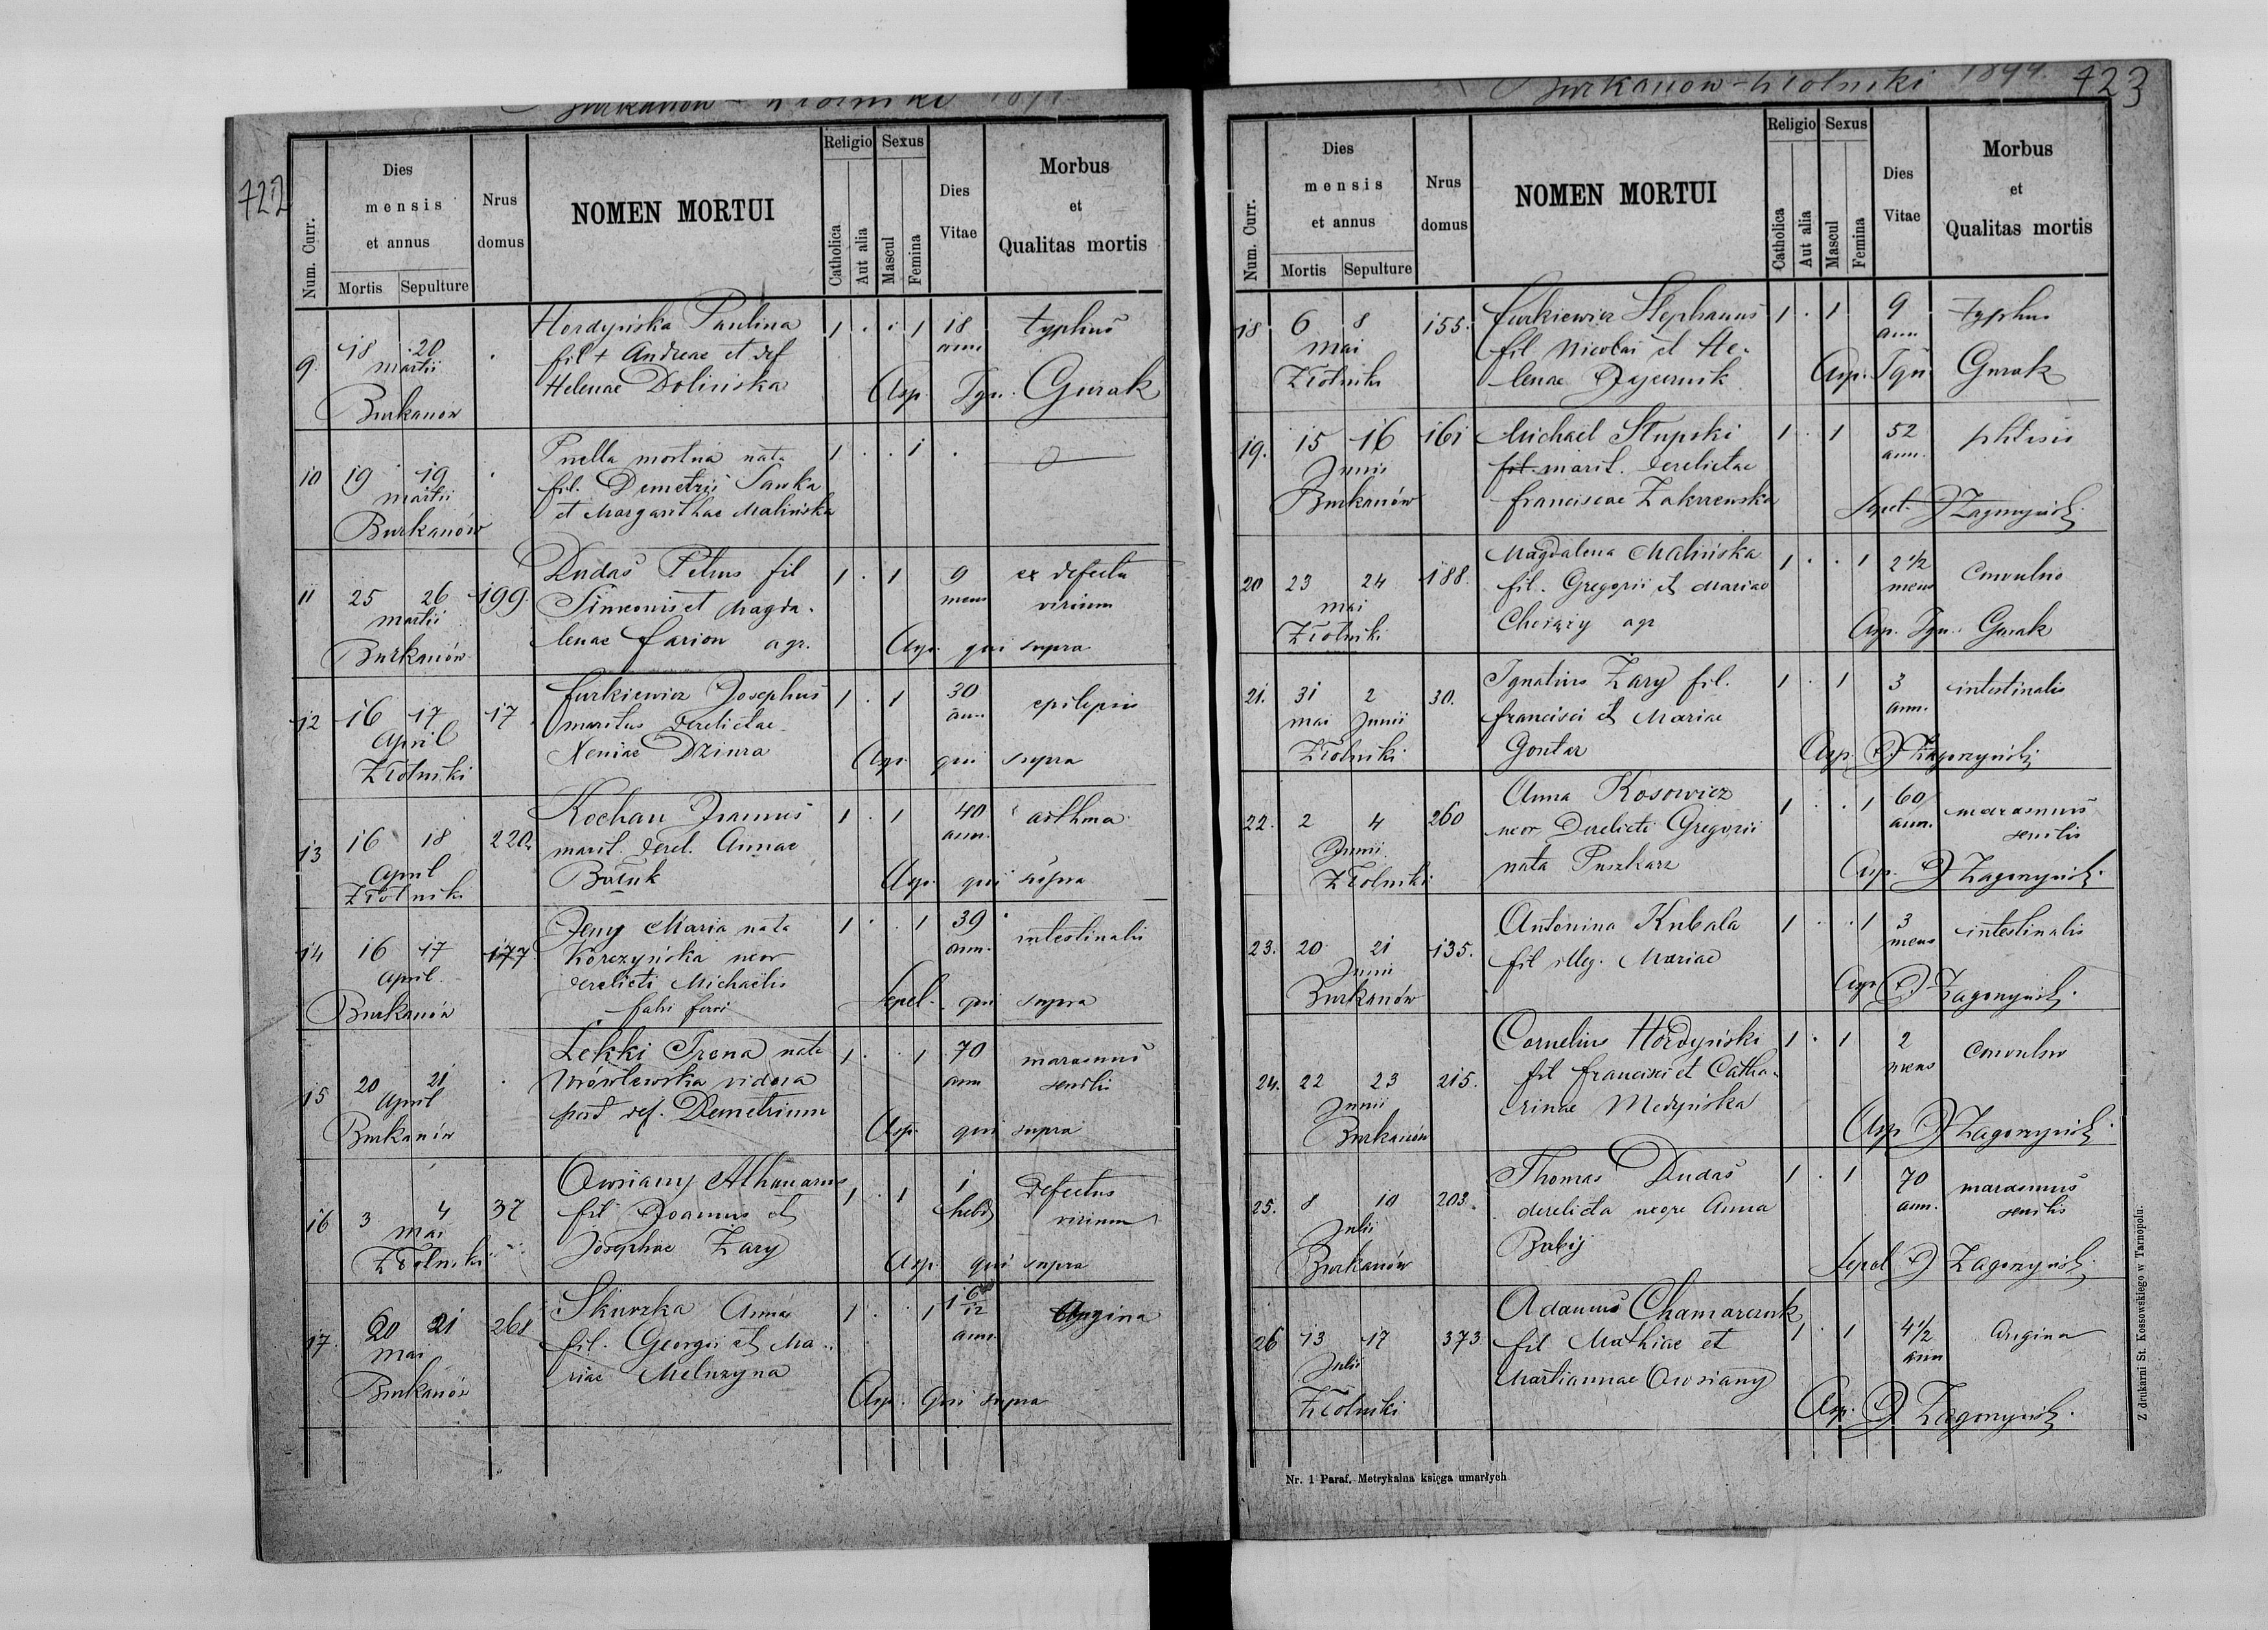 Burkanow - Zlotniki
722
Num. Curr.
Dies mensis et annus
Mortis
Sepulture
Nrus domus
NOMEN MORTUI
Religio
Catholica
Aut alia
Sexus
Mascul
Femina
Dies Vitae
Morbus et Qualitas mortis
9. 18 20 . Hordyńska Paulina 1 . . 1 18 typhus
martii fil + Andreae et def ann
Helenae Dolińska Asp. Ign. Gurak
Burkanów
10 19 19 . Puella mortua nata 1 . . 1 .
martii fil. Demetrii Sawka
et Margarithae Malińska
Burkanów
11 25 26 199. Dudaś Petrus fil 1 . 1 9 ex defectu
martii Simeonis et Magda- mens virium
lenae Farion agr. Asp. qui supra
Burkanów
12 16 17 17 Furkiewicz Josephus 1 . 1 30 epilepsis
April maritus derelictae ann
Xeniae Dziura Asp. qui supra
Złotniki
13 16 18 220. Kochan Joannes 1 . 1 40 asthma
April marit. derel. Annae ann.
Złotniki Asp. qui supra
14 16 17 177 Jeny Maria nata 1 . . 1 39 intestinalis
April Korczyńska uxor ann.
derelicti Michaelis
Burkanów fabri ferri Sepel. qui supra
15 20 21 . Lekki Irena nata 1 . . 1 70 marasmus
April vidova ann senilis
post def. Demetrium
Burkanów Asp. qui supra
16 3 4 37 Owsiany Athanasius 1 . 1 1 defectus
mai fil Joannis et hebd virium
Złotniki Josephae Zary Asp. qui supra
17. 20 21 268 Skurzka Anna 1 . . 1 1 6/12 Angina
mai fil. Georgii et Ma- ann.
riae Meluzyna
Burkanów Asp. qui supra
Burkanow-Zlotniki 1894.
723
Num. Curr.
Dies mensis et annus
Mortis
Sepulture
Nrus domus
NOMEN MORTUI
Religio
Catholica
Aut alia
Sexus
Mascul
Femina
Dies Vitae
Morbus et Qualitas mortis
18 6 8 155. Furkiewicz Stephanus 1 . 1 9 typhus
mai fil Nicolai et He- ann
Złotniki lenae Asp. Ign Gurak
19. 15 16 161 Michael Słupski 1 . 1 52 phtisis
Junii fil marit. derelictae ann.
Burkanów Franciscae Zakrzewska
Sepel. J Zagorzyński
20 23 24 188. Magdalena Malińska 1 . . 1 2 1/2 Convulsio
mai fil. Gregorii et Mariae mens
Złotniki agr Asp. Ign. Gurak
21. 31 2 30. Ignatius Zary fil. 1 . 1 3 intestinalis
mai Junii Francisci et Mariae ann.
Złotniki Gontar Asp. J Zagorzyński
22. 2 4 260 Anna Kosowicz 1 . . 1 60 marasmus
Junii uxor Derelicti Gregorii ann. senilis
Złotniki nata Puszkarz Asp. J Zagorzyński
23. 20 21 135. Antonina Kubala 1 . . 1 3 intestinalis
Junii fil illeg. Mariae mens
Burkanów Asp J Zagorzyński
24. 22 23 215. Cornelius Hordyński 1 . 1 2 Convulsio
Junii fil Francisci et Catha- mens
Burkanów rinae Medyńska Asp J Zagorzyński
25. 8 10 203. Thomas Dudaś 1 . 1 70 marasmus
Julii derelicta uxore Anna ann. senilis
Burkanów Babij Sepel J Zagorzyński
26 13 17 373 Adamus Chamarczuk 1 . 1 4 1/2 Angina
Julii fil Mathiae et ann
Złotniki Martiannae Owsiany
Asp. J Zagorzyński
Nr. 1 Paraf. Metrykalna księga umarłych
Z drukarni St. Kossowskiego w Tarnopolu.